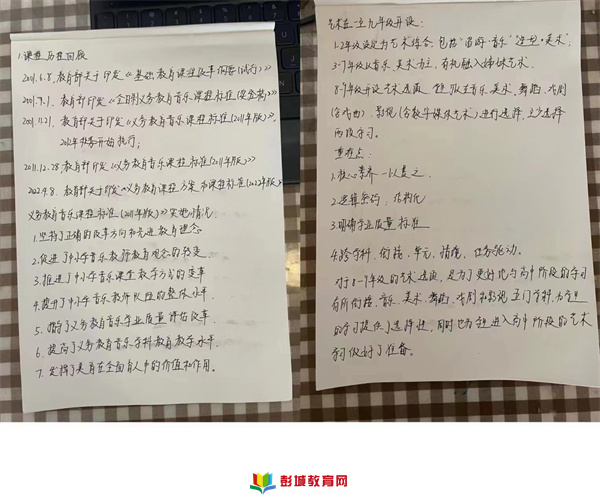 1.课程历程回顾
2001.6.8.教育部关于印发《基础教育课程改革纲要(试行)》
2001.7.1.教育部印发《全日制义务教育音乐课程标准(实验稿)》
2001.11.21.教育部关于印发《义务教育音乐课程标准(2011年版)》
2012年秋季开始执行;
2011.12.28.教育部印发《义务教育音乐课程标准(2011年版)》
2022.4.8.教育部关于印发义务教育课程方案和课程标准(2022年版)
义务教育音乐课程标准(2011年版)》实施情况
1.坚持了正确的改革方向和先进教育理念
2.促进了中小学音乐教师教育观念的转变
3.推进了中小学音乐课堂教学方式的变革
4.提升了中小学音乐教师队伍的整体水平
5.推动了义务教育学业质量评估改革
6.提高了义务教育音乐学科教育教学水平
7.发挥了美育在全面育人中的价值和作用。
艺术在一至九年级开设:
1-2年级设定为艺术综合,包括"唱游·音乐""造型·美术";
3-7年级以音乐、美术为主,有机融入姊妹艺术
8-9年级开设艺术选项 音乐、美术、舞蹈、戏剧
(含戏曲)、影视(含数字媒体艺术)进行选择,至少选择
两项学习。
重难点:
1.核心素养一以贯之
2.选择密切、结构化
3.明确学业质量标准
4.跨学科、衔接、单元、情境、任务驱动。
对于8-9年级的艺术选项,是为了更好地与高中阶段的学习
有所衔接,音乐、美术、舞蹈、戏剧和影视五门学科,为学生
的学习提供了选择性,同时也为学生进入高中阶段的艺术
学习做好了准备。
彭城教育网